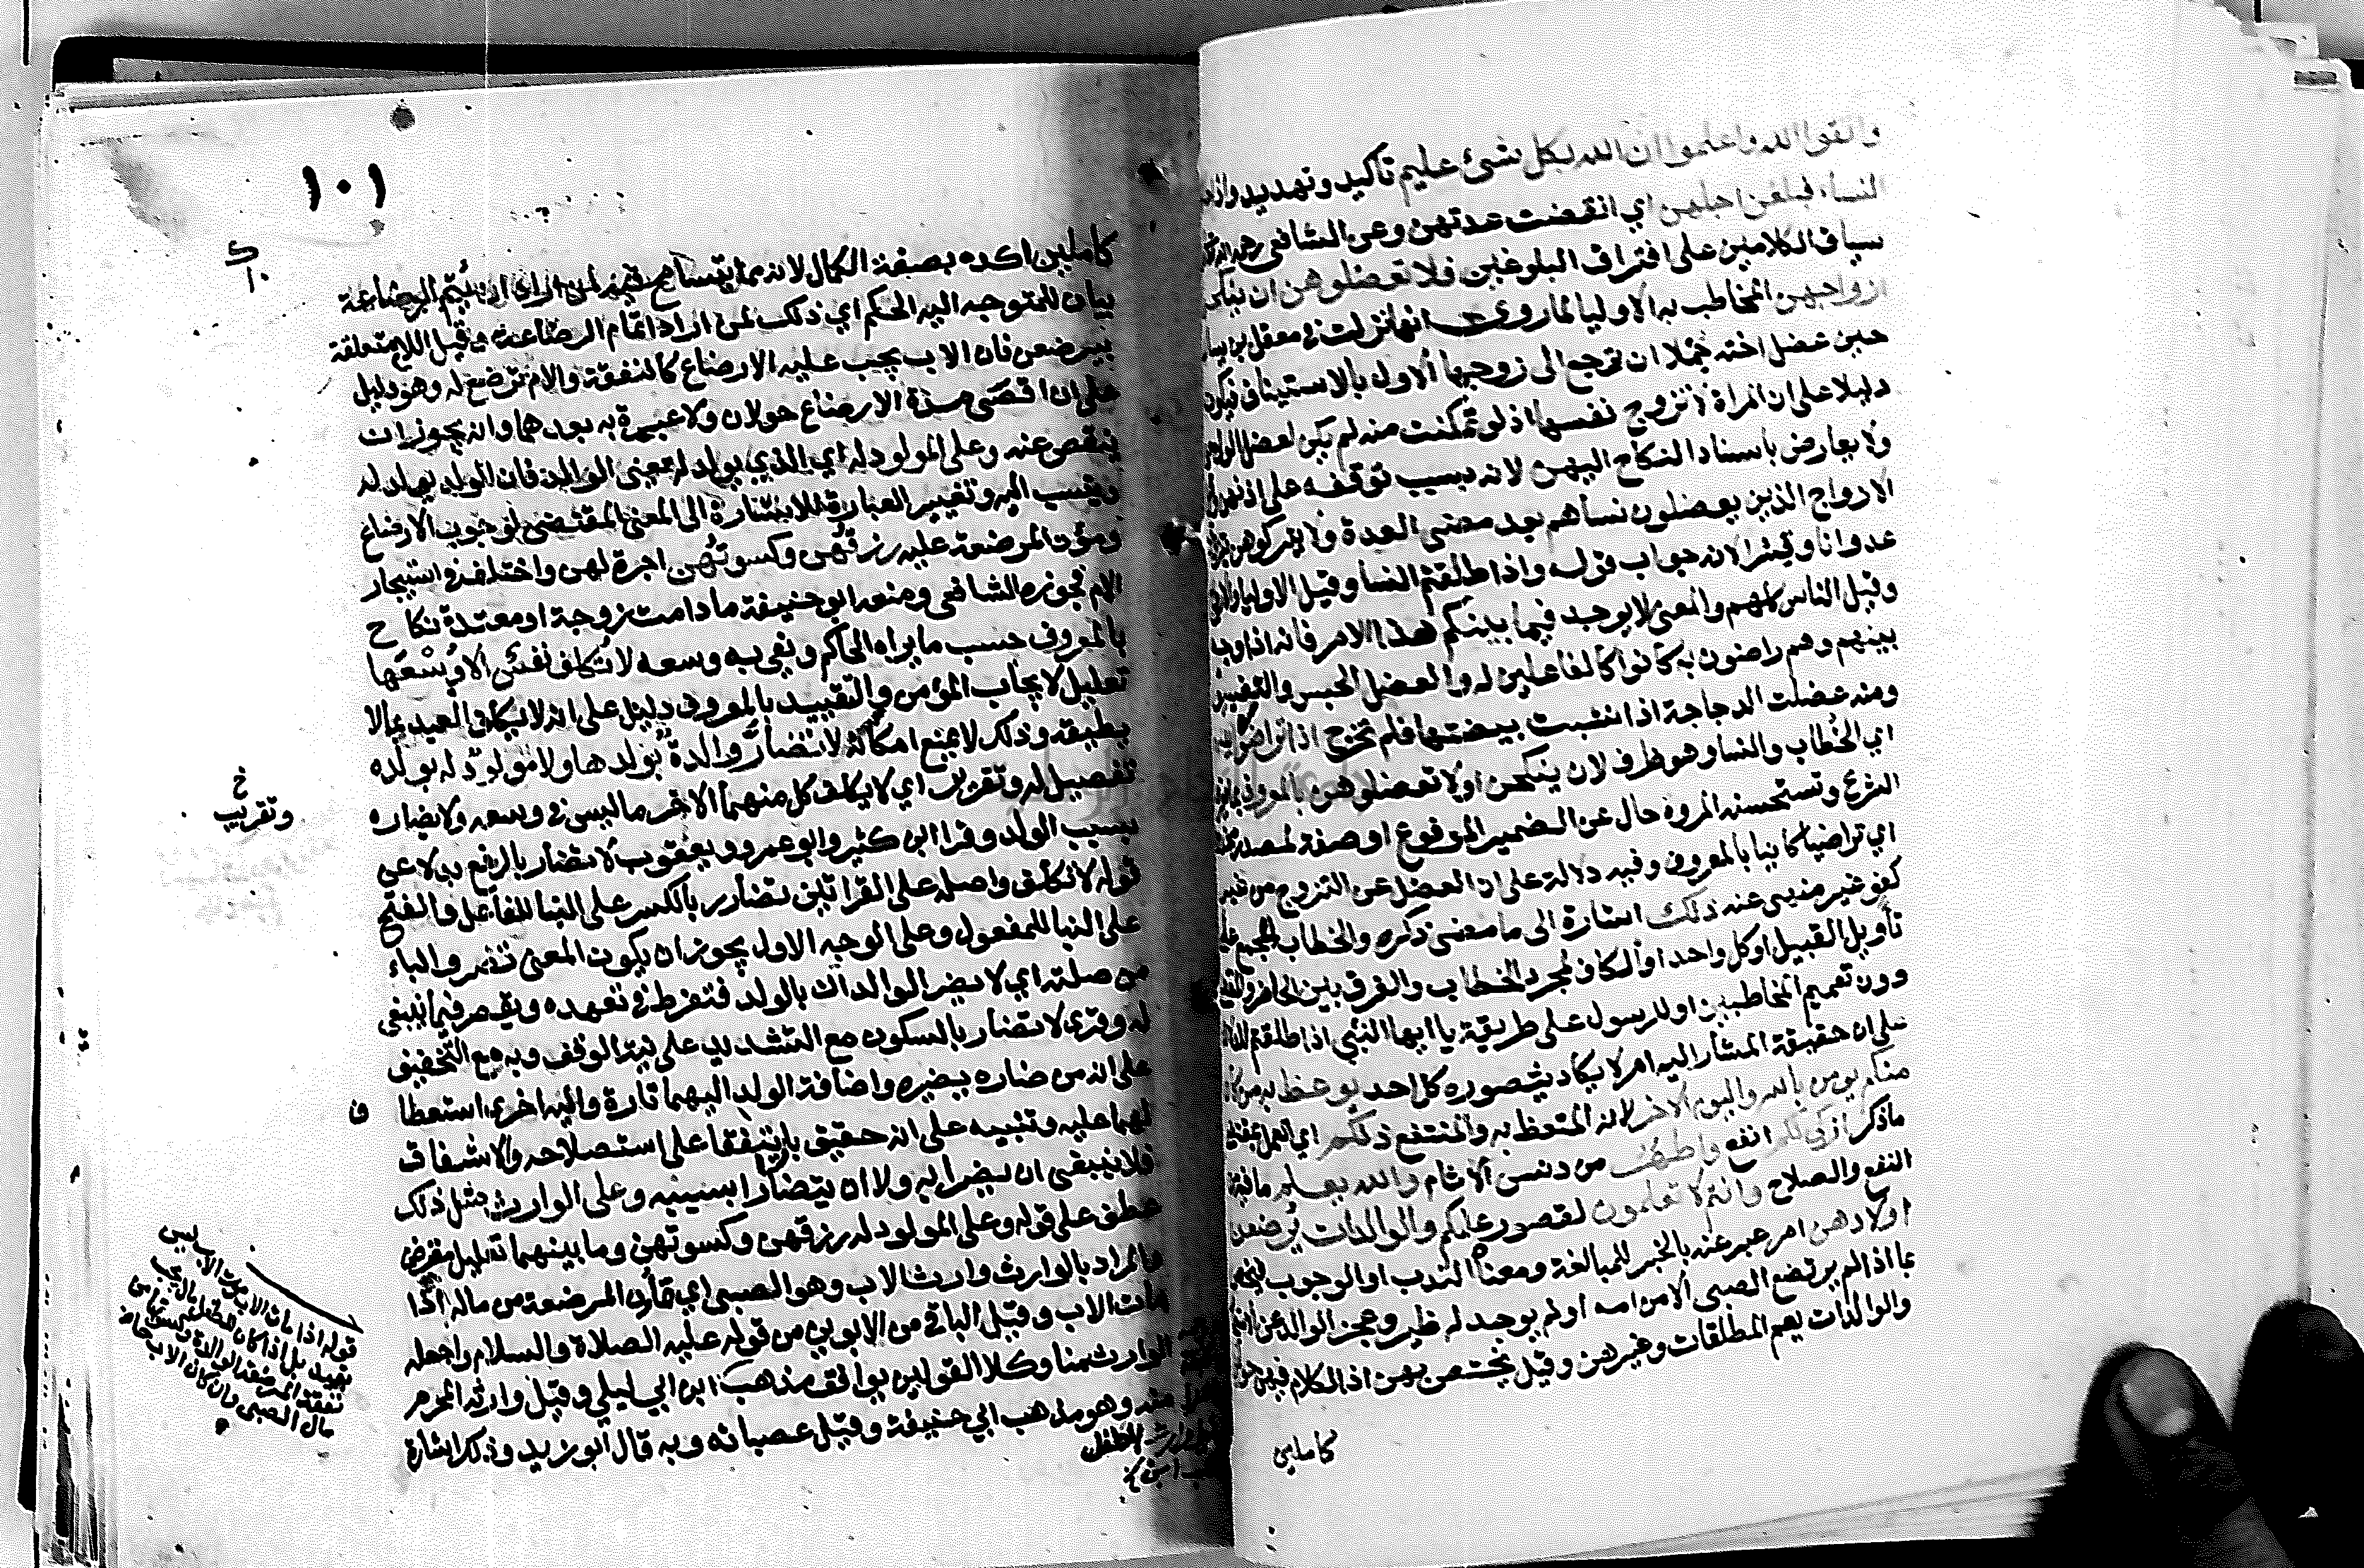 واتقوا الله واعلموا ان الله بكل شئ عليم تأكيد وتهديد واذا
النساء فبلغن اجلهن اي انقضت عدتهن وعن الشافعي رحمه الله
سياق الكلامين على افتراق البلوغين فلا تعضلوهن ان ينكحن
ازواجهن المخاطب به الاوليا لما روي انها نزلت في معقل بن يسار
حين عضل اخته جملا ان ترجع الى زوجها الاول بالاستيناف فيكون
دليلا على ان المراة لا تزوج نفسها اذ لو تمكنت منه لم يكن لعضل الولي
ولا يعارض باسناد النكاح اليهن لانه بسبب توقفه على اذنهن
الازواج الذين يعضلون نسأهم بعد مضي العدة ولا يتركوهن
عدوانا وقسرا لانه جواب قوله واذا طلقتم النسا وقيل الاوليا
وقيل الناس كلهم والمعنى لا يوجد فيما بينكم هذا الامر فانه اذا وجد
بينهم وهم راضون به كانوا كالفاعلين له والعضل الحبس والتضييق
ومنه عضلت الدجاجة اذا نشبت بيضتها فلم تخرج اذا تراضوا
اي الخطاب والنسا وهو ظرف لان ينكحن اولا تعضلوهن بالمعروف
الشرع وتستحسنه المروه حال عن الضمير المرفوع او صفة لمصدر
اي تراضيا كاينا بالمعروف وفيه دلالة على ان العضل عن التزوج من غير
كفو غير منهي عنه ذلك اشارة الى ما مضى ذكره والخطاب للجمع على
تأويل القبيل او كل واحد او الكاف لمجرد الخطاب والفرق بين الحاضر
دون تعميم المخاطبين او للرسول على طريقة يا ايها النبي اذا طلقتم
على ان حقيقة المشار اليه امر لا يكاد يتصوره كل احد يوعظ به من كان
منكم يومن بالله واليوم الاخر لانه المتعظ به والمنتفع ذلكم اي العمل بمقتضى
ماذكر ازكى لكم انفع واطهر من دنس الآثام والله يعلم ما فيه
النفع والصلاح وانتم لا تعلمون لقصور علمكم والوالدات يرضعن
اولادهن امر عبر عنه بالخبر للمبالغة ومعناه الندب او الوجوب
بما اذا لم يرتضع الصبي الا من امه او لم يوجد له ظير وعجز الوالد عن
والوالدات يعم المطلقات وغيرهن وقيل يختص بهن اذ الكلام فيهن
كاملين
١٠١
كاملين اكده بصفة الكمال لانه مما يتسامح فيه لمن اراد ان يتم الرضاعة
بيان للمتوجه اليه الحكم اي ذلك لمن اراد اتمام الرضاعة وقيل اللام متعلقة
بيرضعن فان الاب يجب عليه الارضاع كالنفقة والام ترضع له وهو دليل
على ان اقصى مدة الارضاع حولان ولا عبرة به بعدهما وانه يجوز ان
ينقص عنه وعلى المولود له اي الذي يولد له يعني الوالد فان الولد يولد له
وينسب اليه وتغيير العبارة للاشارة الى المعنى المقتضى لوجوب الارضاع
ومؤن المرضعة عليه رزقهن وكسوتهن اجرة لهن واختلف في استيجار
الام فجوزه الشافعي ومنعه ابو حنيفة مادامت زوجة او معتدة نكاح
بالمعروف حسب ما يراه الحاكم ويفي به وسعه لا تكلف نفس الا وسعها
تعليل لايجاب المؤمن والتقييد بالمعروف دليل على انه لا يكلف العبد بما لا
يطيقه وذلك لا يمنع امكانه لا تضار والدة بولدها ولا مولود له بولده
تفصيل له وتقرير اي لا يكلف كل منهما الآخر ما ليس في وسعه ولا يضاره
بسبب الولد وقرا ابن كثير وابو عمرو ويعقوب لا تضار بالرفع بدلا عن
قوله لا تكلف واصله على القراتين تضارر بالكسر على البنا للفاعل والفتح
على البنا للمفعول وعلى الوجه الاول يجوز ان يكون المعنى تضر والباء
من صلته اي لا يضر الوالدان بالولد فتفرط في تعهده ويقصر فيما ينبغي
له وقرى لا تضار بالسكون مع التشديد على نية الوقف وبه مع التخفيف
على انه من ضاره يضيره واضافة الولد اليهما تارة واليه اخرى استعطا
ف
لهما عليه وتنبيه على انه حقيق بان يتفقا على استصلاحه والاشفاق
فلا ينبغي ان يضرا به ولا ان يتضارا بسببه وعلى الوارث مثل ذلك
عطف على قوله وعلى المولود له رزقهن وكسوتهن وما بينهما تعليل معترض
والمراد بالوارث وارث الاب وهو الصبي اي مؤن المرضعة من ماله اذا
مات الاب وقيل الباقي من الابوين من قوله عليه الصلاة والسلام واجعله
الوارث منا وكلا القولين يوافق مذهب ابن ابي ليلي وقيل وارثه المحرم
منه وهو مذهب ابي حنيفة وقيل عصباته وبه قال ابو زيد وذلك اشارة
خ
وتقريب
قوله اذا مات الاب موت الاب ليس
بقيد بل اذا كان للطفل مال يجب
نفقة المرضعة الوالدة وكسوتها من
مال الصبي وان كان الاب حاضر